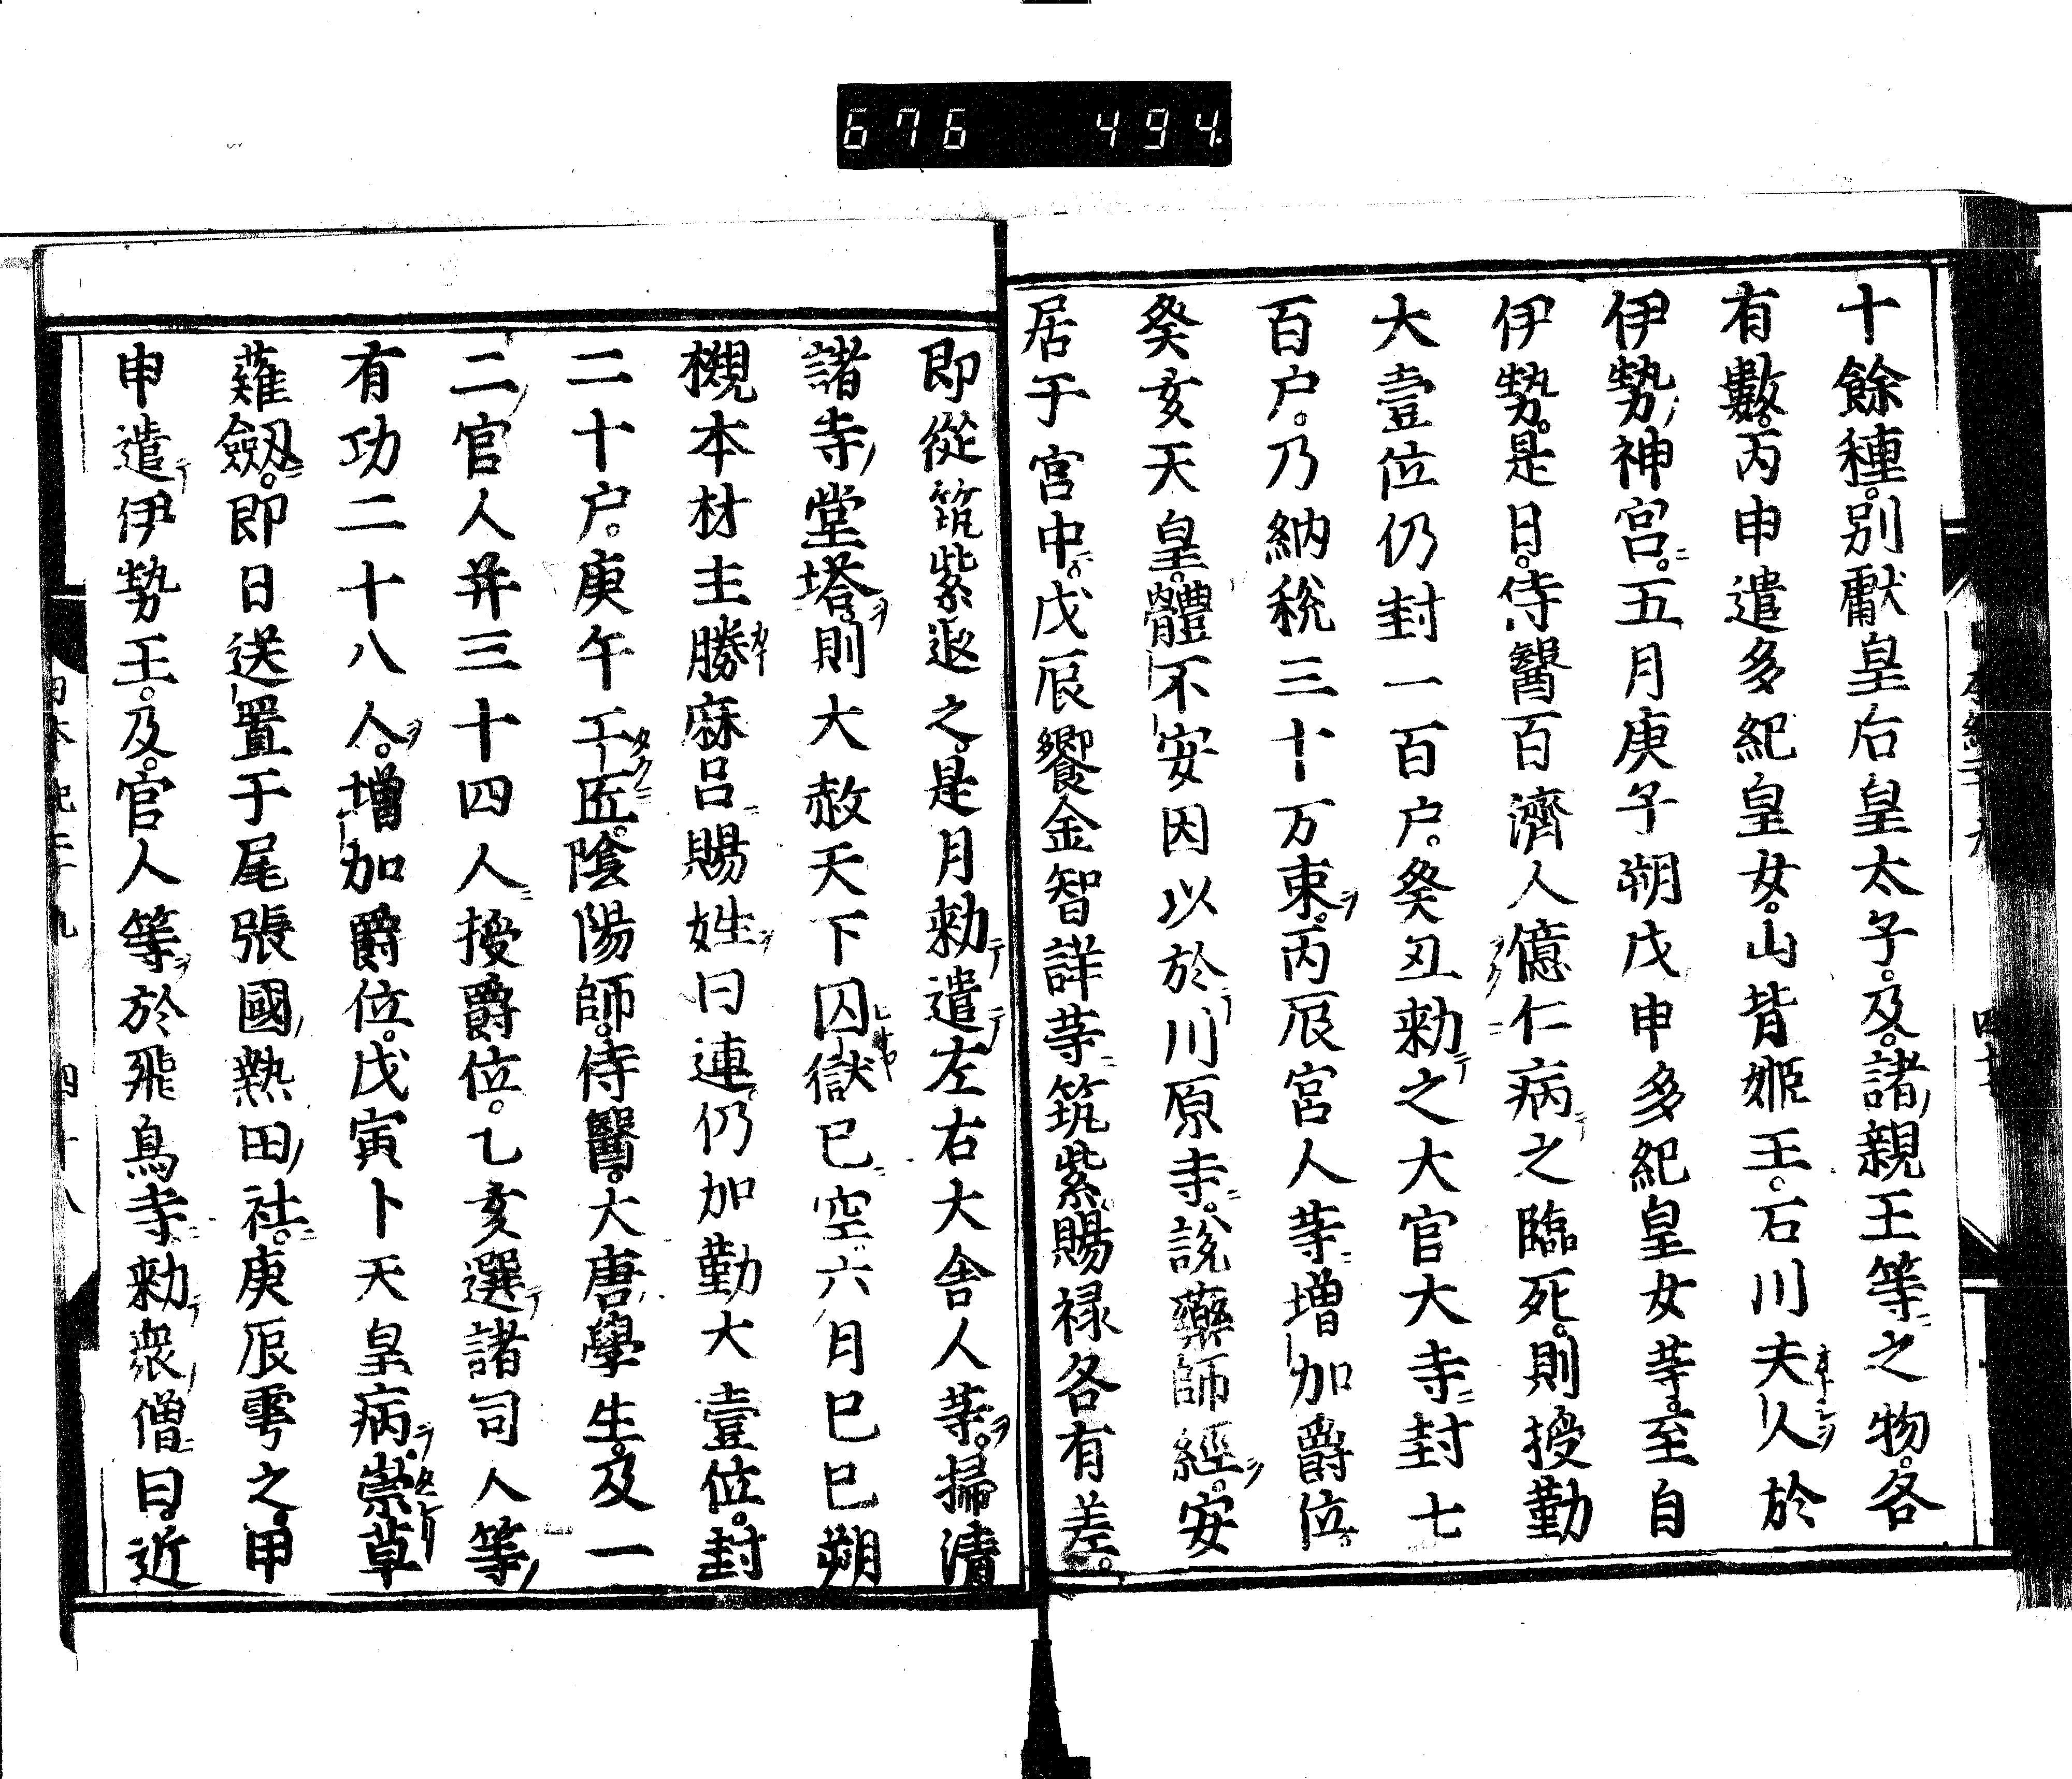 676 494.
十餘種。別獻皇后皇太子。及。諸親王等之物。各
有數。丙申遣多紀皇女。山背姬王。石川夫人於
伊勢神宮。五月庚子朔戊申多紀皇女等。至自
伊勢。是日。侍醫百濟人億仁病之臨死。則授勤
大壹位仍封一百户。癸丑勅之大官大寺封七
百户。乃納稅三十万束。丙辰宮人等增加爵位。
癸亥天皇。體不安因以於川原寺。說藥師經。安
居于宮中。戊辰饗金智詳等筑紫賜禄各有差。
即從筑紫退之。是月勅遣左右大舍人等。掃清
諸寺堂塔。則大赦天下囚獄已空六月巳巳朔
槻本村主勝麻呂賜姓曰連。仍加勤大壹位。封
二十户。庚午工匠。陰陽師。侍醫。大唐學生。及一
二官人并三十四人授爵位。乙亥選諸司人等
有功二十八人。增加爵位。戊寅卜天皇病。祟草
薙劔。即日送置于尾張國熱田社。庚辰雩之。甲
申遣伊勢王。及。官人等於飛鳥寺勅衆僧曰。近